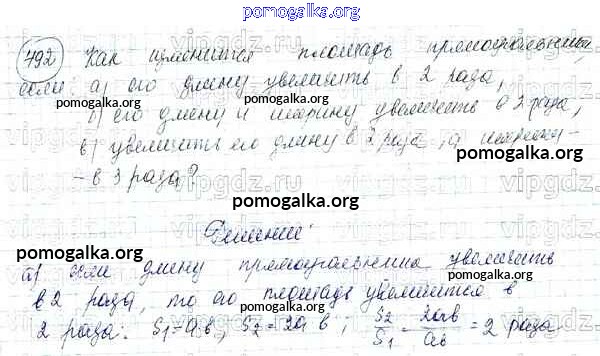 pomogalka.org
792 Как изменится площадь прямоугольника,
если: а) его длину увеличить в 2 раза,
pomogalka.org
б) его длину и ширину увеличить в 2 раза,
в) увеличить его длину в 2 раза, а ширину -
pomogalka.org
- в 3 раза?
pomogalka.org
Решение:
pomogalka.org
а) если длину прямоугольника увеличить
в 2 раза, то его площадь увеличится в
2 раза. S₁=ab, S₂=2ab; S₂/S₁ = 2ab/ab = 2 раза
pomogalka.org